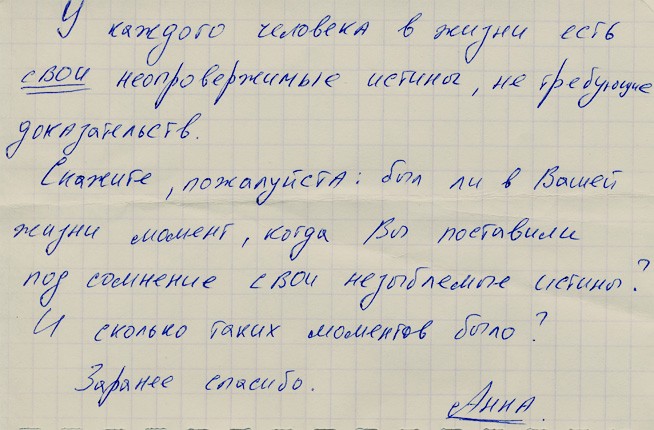 У каждого человека в жизни есть
свои неопровержимые истины, не требующие
доказательств.
Скажите, пожалуйста: был ли в Вашей
жизни момент, когда Вы поставили
под сомнение свои незыблемые истины?
И сколько таких моментов было?
Заранее спасибо.
Анна.